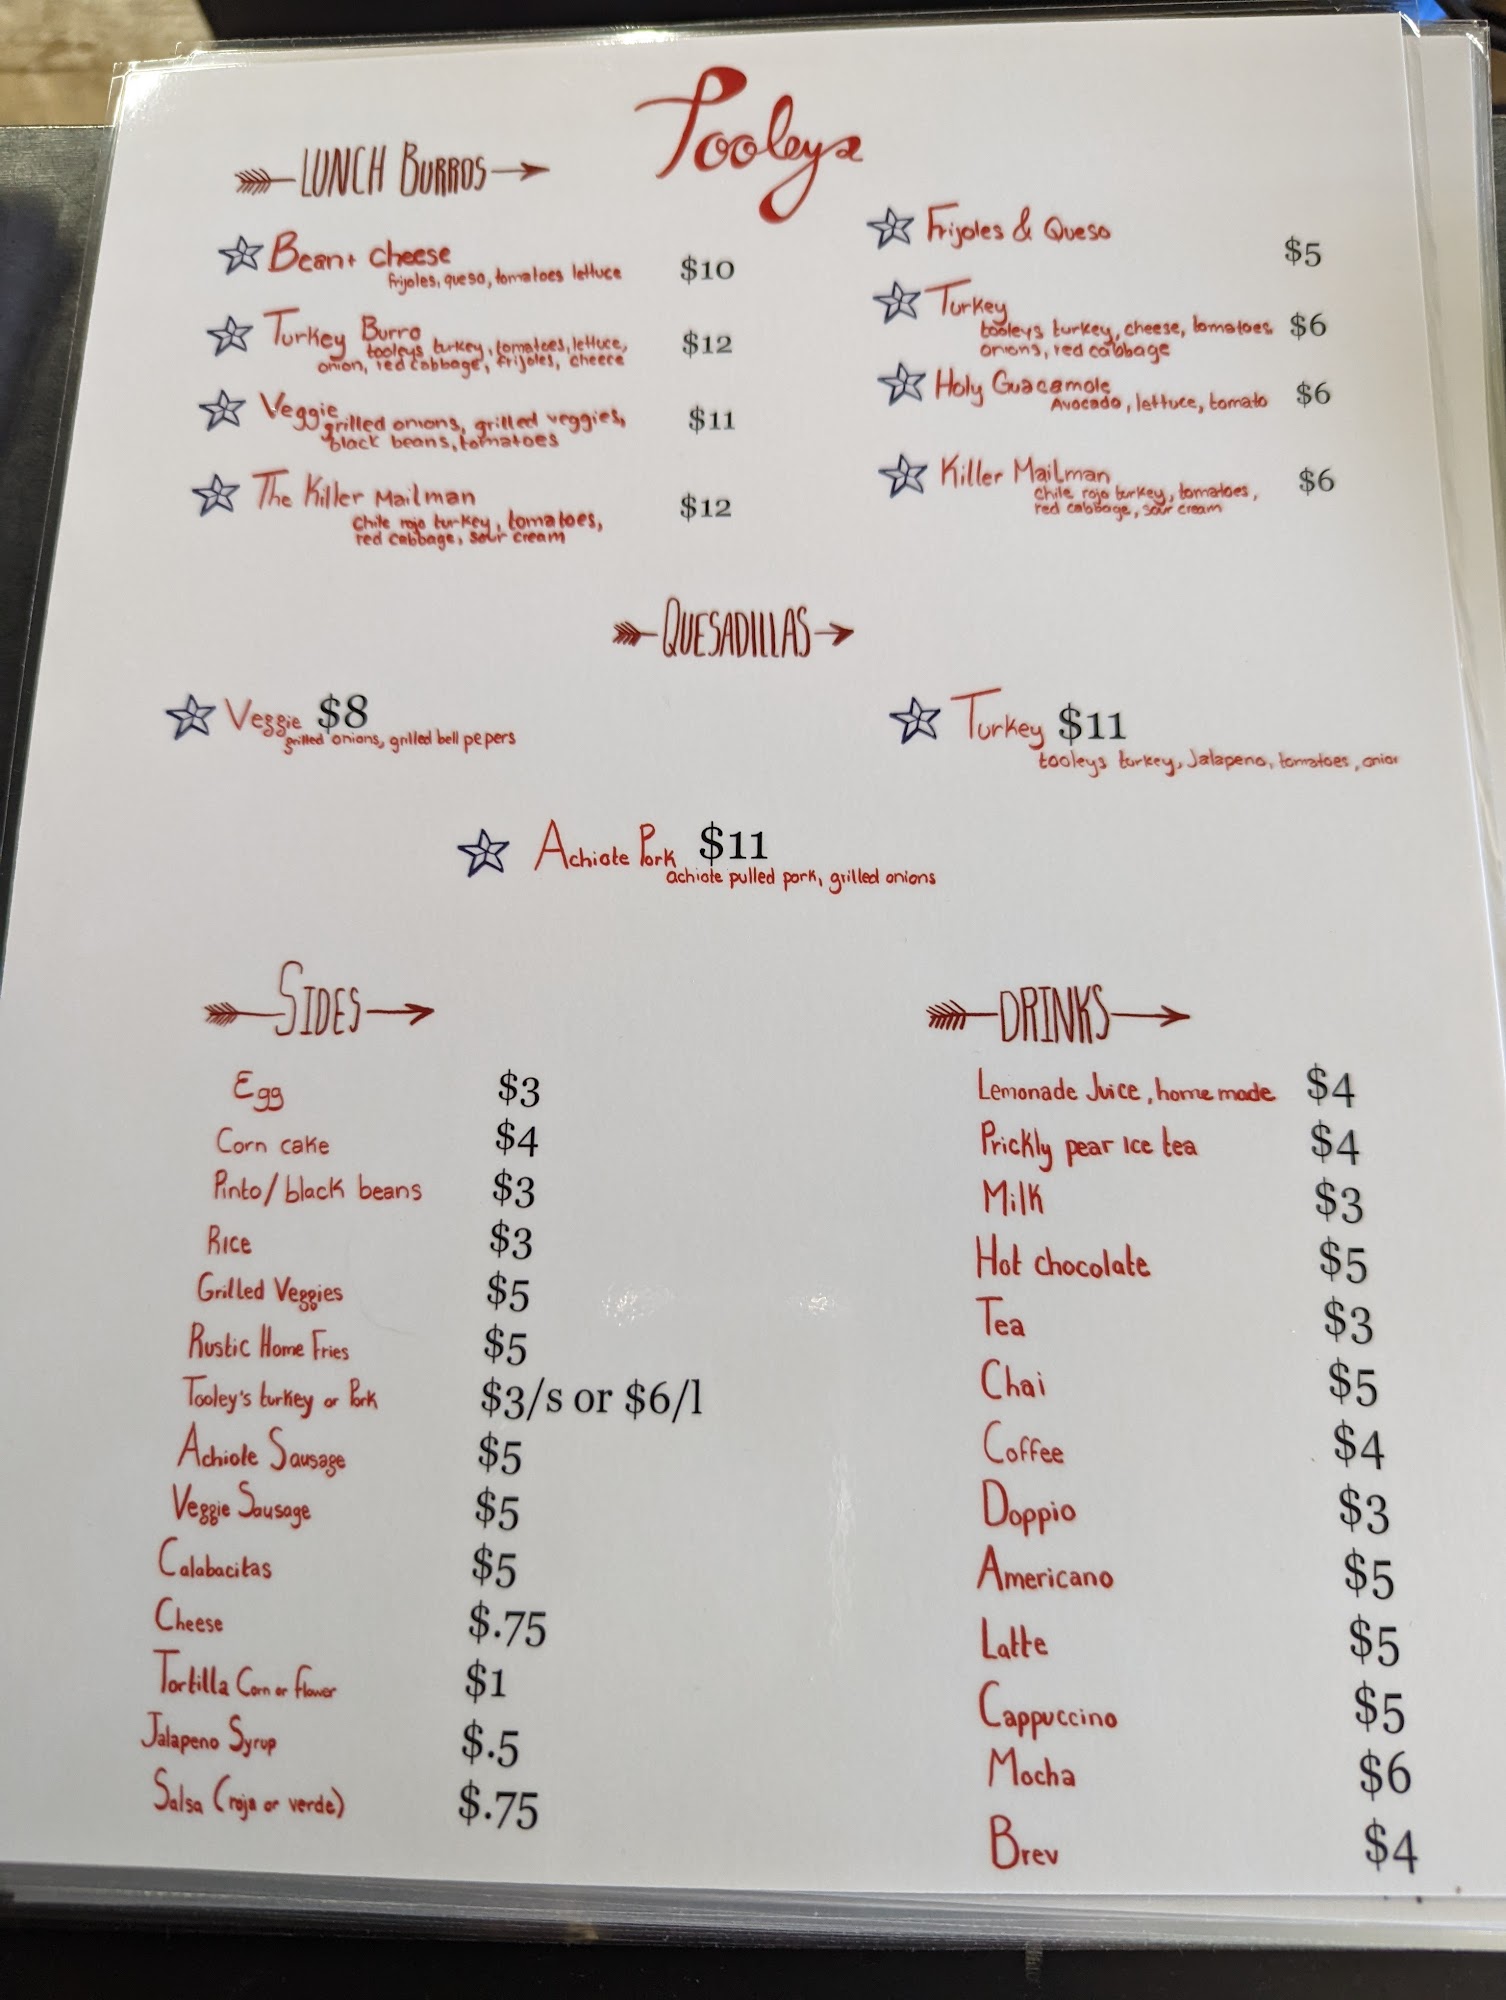 Tooleys
LUNCH BURROS
Bean+ cheese
frijoles, queso, tomatoes lettuce $10
Turkey Burro
tooleys turkey, tomatoes, lettuce, $12
onion, red cabbage, frijoles, cheece
Veggie
grilled onions, grilled veggies, $11
black beans, tomatoes
The Killer Mailman
chile rojo turkey, tomatoes, $12
red cabbage, sour cream
Frijoles & Queso $5
Turkey
tooleys turkey, cheese, tomatoes $6
onions, red cabbage
Holy Guacamole $6
Avocado, lettuce, tomato
Killer Mailman $6
chile rojo turkey, tomatoes,
red cabbage, sour cream
QUESADILLAS
Veggie $8
grilled onions, grilled bell pepers
Turkey $11
tooleys turkey, Jalapeno, tomatoes, onion
Achiote Pork $11
achiote pulled pork, grilled onions
SIDES
Egg $3
Corn cake $4
Pinto/black beans $3
Rice $3
Grilled Veggies $5
Rustic Home Fries $5
Tooley's turkey or Pork $3/s or $6/l
Achiote Sausage $5
Veggie Sausage $5
Calabacitas $5
Cheese $.75
Tortilla Corn or flower $1
Jalapeno Syrup $.5
Salsa (roja or verde) $.75
DRINKS
Lemonade Juice, home made $4
Prickly pear Ice tea $4
Milk $3
Hot chocolate $5
Tea $3
Chai $5
Coffee $4
Doppio $3
Americano $5
Latte $5
Cappuccino $5
Mocha $6
Brev $4